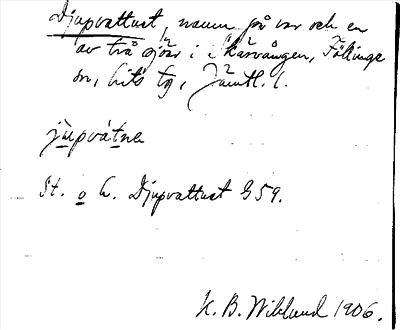 Djupvattnet, namn på var och en
av två sjöar i Kärvången, Föllinge
sn, Lits tg, Jämtl. l.
jùpvátna
St. o h. Djupvattnet G 59.
K. B. Wiklund 1906.